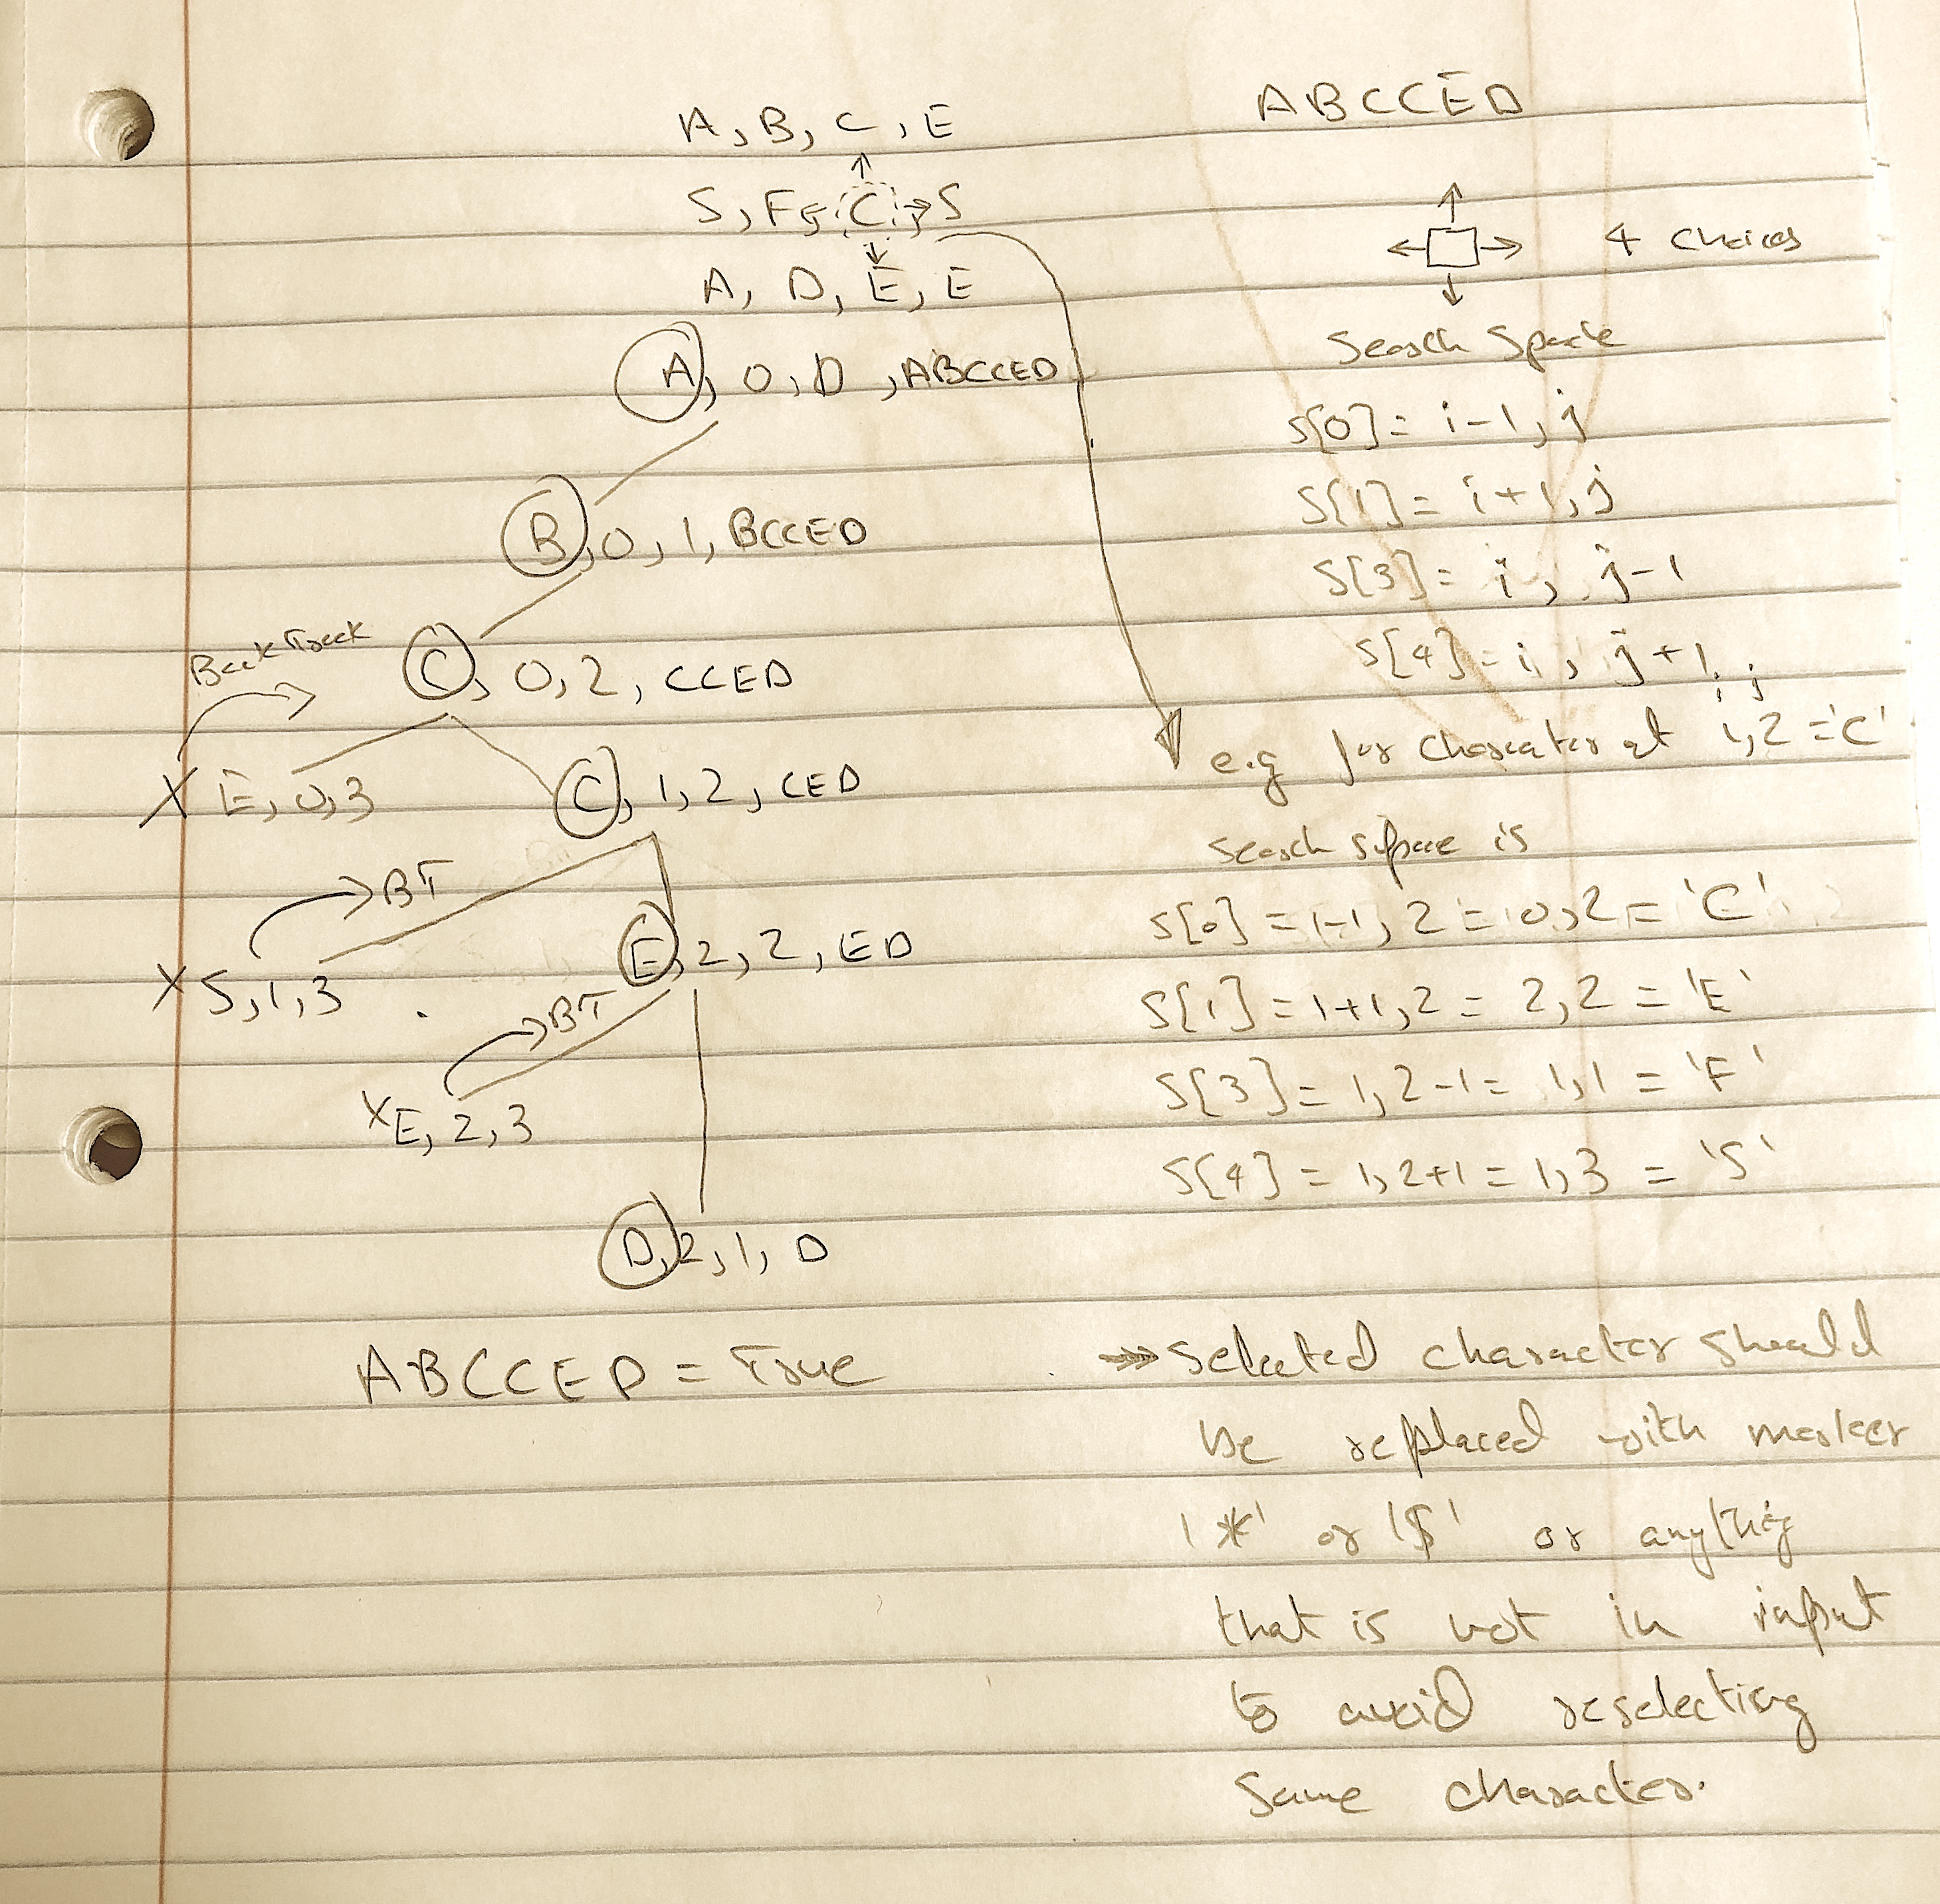 A, B, C, E
S, F, C, S
A, D, E, E
A, 0, D, ABCCED
B, 0, 1, BCCED
C, 0, 2, CCED
Back Track
X E, 0, 3
C, 1, 2, CED
BT
X S, 1, 3
E, 2, 2, ED
BT
X E, 2, 3
D, 2, 1, D
ABCCED = True
ABCCED
4 Choices
Search Space
S[0] = i-1, j
S[1] = i+1, j
S[3] = i, j-1
S[4] = i, j+1
i, j
e.g for character at 1,2 = 'C'
search space is
S[0] = 1-1, 2 = 0,2 = 'C'
S[1] = 1+1,2 = 2,2 = 'E'
S[3] = 1, 2-1 = 1,1 = 'F'
S[4] = 1, 2+1 = 1,3 = 'S'
Selected character should
be replaced with marker
'*' or '$' or anything
that is not in input
to avoid reselecting
same character.